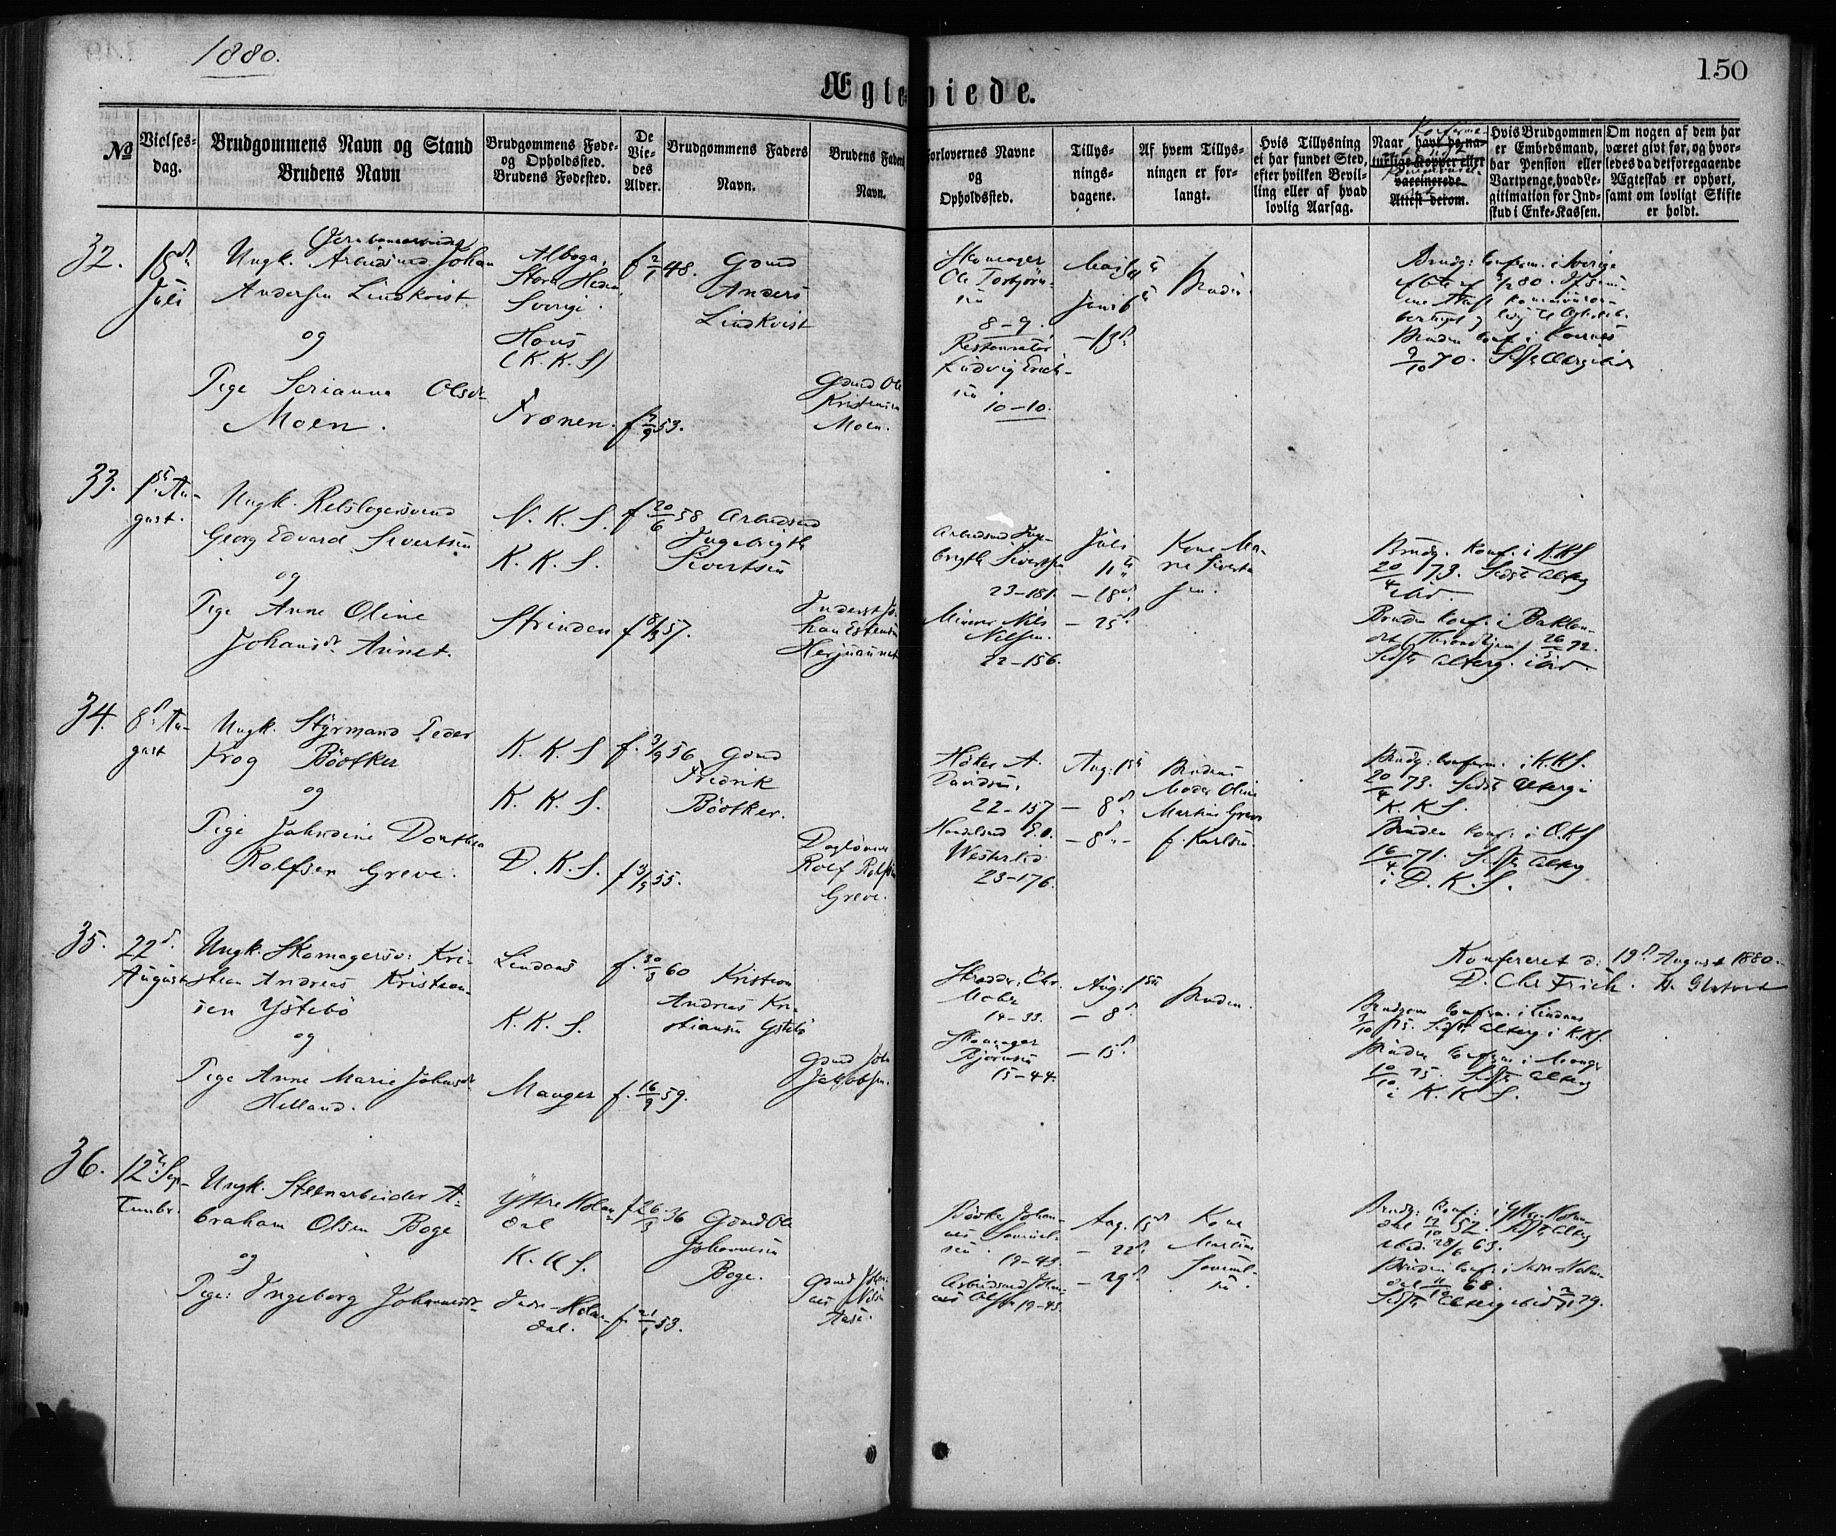 1880.
Ægteviede.
150
No
Vielses-
dag.
Brudgommens Navn og Stand
Brudens Navn
Brudgommens Føde-
og Opholdssted.
Brudens Fødested.
De
Vie-
des
Alder.
Brudgommens Faders
Navn.
Brudens Faders
Navn.
Forlovernes Navne
og
Opholdssted.
Tillys-
nings-
dagene.
Af hvem Tillys-
ningen er for-
langt.
Hvis Tillysning
ei har fundet Sted,
efter hvilken Bevil-
ling eller af hvad
lovlig Aarsag.
Naar
havt de na-
turlige Kopper eller
vaccinerede.
Attest derom.
Hvis Brudgommen
er Embedsmand,
har Pension eller
Vartpenge, hvad Le-
gitimation for Ind-
skud i Enke-Kassen.
Om nogen af dem har
været givt før, og hvor-
ledes da det foregaaende
Ægteskab er ophørt,
samt om lovligt Skifte
er holdt.
32.
18de
Juli
Ungk. Arbeidsmd Johan
Andersen Lindkvist
og
Pige Serianna Olsdr
Moen.
Alboga,
Stora
Sverige.
Hous
(K. K. S)
Frænen.
f 2/1 48.
f 7/9 53.
Gmd
Anders
Lindkvist
Gmd Ole
Kristensen
Moen.
Skomager
Ole Torbjørn-
sen
8-9.
Ludvig Erich-
sen
10-10.
Juni 6te
-13de
Bruden
Brudg: konfirm. i Sverige
9/10 70. Sidste Alterg ibid
33.
1ste Au-
gust.
Ungk. Rebslagersvend
Georg Edvard Sivertsen
og
Pige Anne Oline
Johansdr Aunet.
N. K. S.
K. K. S.
Strinden
f 20/6 58
f 8/9 57.
Arbeidsmd
Ingebrigth
Sivertsen
Inderst Jo-
han Estensen
Herjuaunet
Arbeidsmd Inge-
brigth Sivertsen
23-181.
Nils
Nilsen.
22-156.
Juli
11te
-18de
-25de
Kone Ma-
rie Sivert-
sen.
Brudg. konf. i K.K.S
20/4 73. Sidste Alterg
ibid.
Bruden konf. i Baklan-
det (Throndhjem) 26/5 72.
Sidste Alterg. ibid.
34.
8de Au-
gust
Ungk. Styrmand Peder
Krog Bödtker
og
Pige Jahrdine Dorthea
Rolfsen Greve.
K. K. S
K. K. S.
D. K. S.
f. 3/9 56
f 3/9 55.
Gmd
Fredrik
Bödtker.
Daglønner
Rolf Rolfsen
Greve.
Høker A.
Davidsen.
22-157
Handelsmd E.O.
Westerlid
23-176.
Aug: 1ste
- 8de
- 8de -
Brudens
Moder Oline
Martine Greve
f. Karlsen.
Brudg: konfirm. i K.K.S.
20/4 73. Sidste Alterg i
K. K. S.
Bruden konf. i D.K.S
16/4 71. Sidste Alterg
i D. K. S.
35.
22de
August
Ungk. Skomagersv: Kri-
stian Andreas Kristian-
sen Ystebö
og
Pige Anne Marie Johnsdr
Helland.
Lindaas
K. K. S.
Manger
f. 30/3 60
f. 16/9 59.
Kristian
Andreas Kri-
stiansen Ystebö
Gmd John
Jakobsen.
Skrædder Chr.
Mohr
14-33.
Skomager
Bjørnsen
15-44.
Aug: 1ste
- 8de
- 15de
Bruden.
Konfereret d: 19de August 1880.
D. Chr Frich.
Brudgom konfirm. i Lindaas
3/10 75. Sidste Alterg i K.K.S.
Bruden konfirm. i Manger
10/10 75. Sidste Alterg
i K. K S.
36.
12te Sep-
tembr.
Ungk. Steenarbeider A-
braham Olsen Boge
og
Pige: Ingeborg Johannesdr
Yttre Holm-
dal
K. K S.
Indre Holm-
dal.
f 26/3 36
f. 21/1 53.
Gmd Ole
Johannesen
Boge.
Gmd Johan-
nes Nilsen
Aase.
Bødker Johan-
nes Samuel-
sen.
19-43.
Arbeidsmd Johan-
nes Olsen 19-43.
Aug. 15de
- 22de
- 29de
Kone
Martine
Samuel-
sen.
Brudg: konf: i Yttre Holm-
dal 17/10 52. Sidste Alterg
ibid. 28/6 63.
Bruden konf. i Indre Holm-
dal 11/10 68.
Sidste Alterg ibid 79.